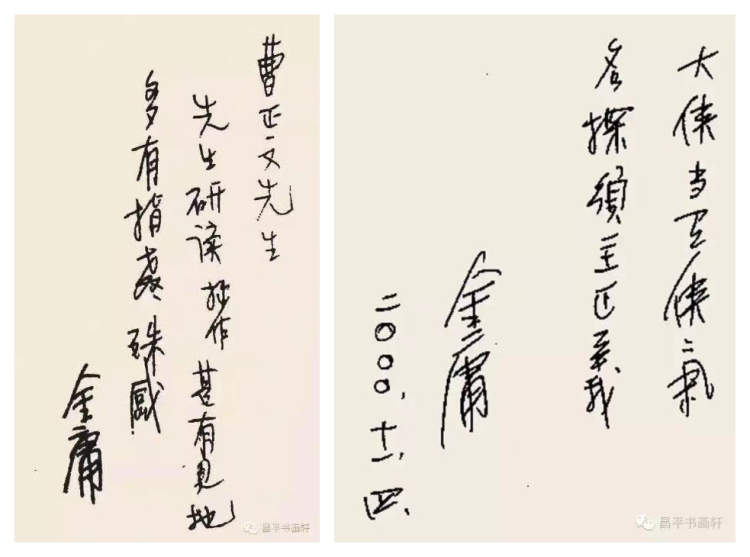 曹正文先生
先生研读拙作甚有见地
多有指教殊感
金庸
昌平书画轩
大俠当具俠氣
名探須主正義
金庸
二〇〇〇.十一.四.
昌平书画轩